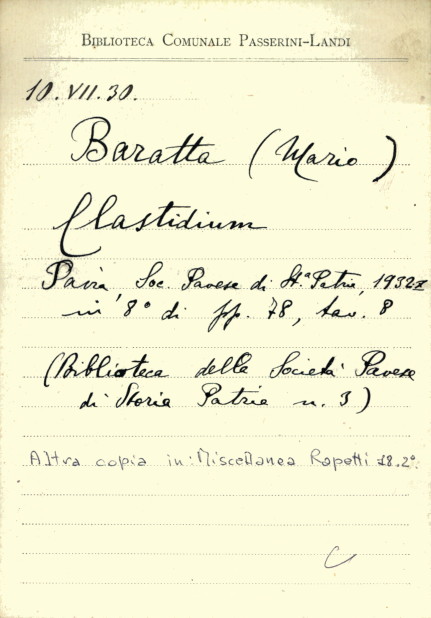 BIBLIOTECA COMUNALE PASSERINI-LANDI
10.VII.30.
Baratta (Mario)
Clastidium
Pavia, Soc. Pavese di St.ª Patria, 1932
in 8° di pp. 78, tav. 8
(Biblioteca della Società Pavese
di Storia Patria n. 3)
Altra copia in: Miscellanea Rapetti 18.2°
C